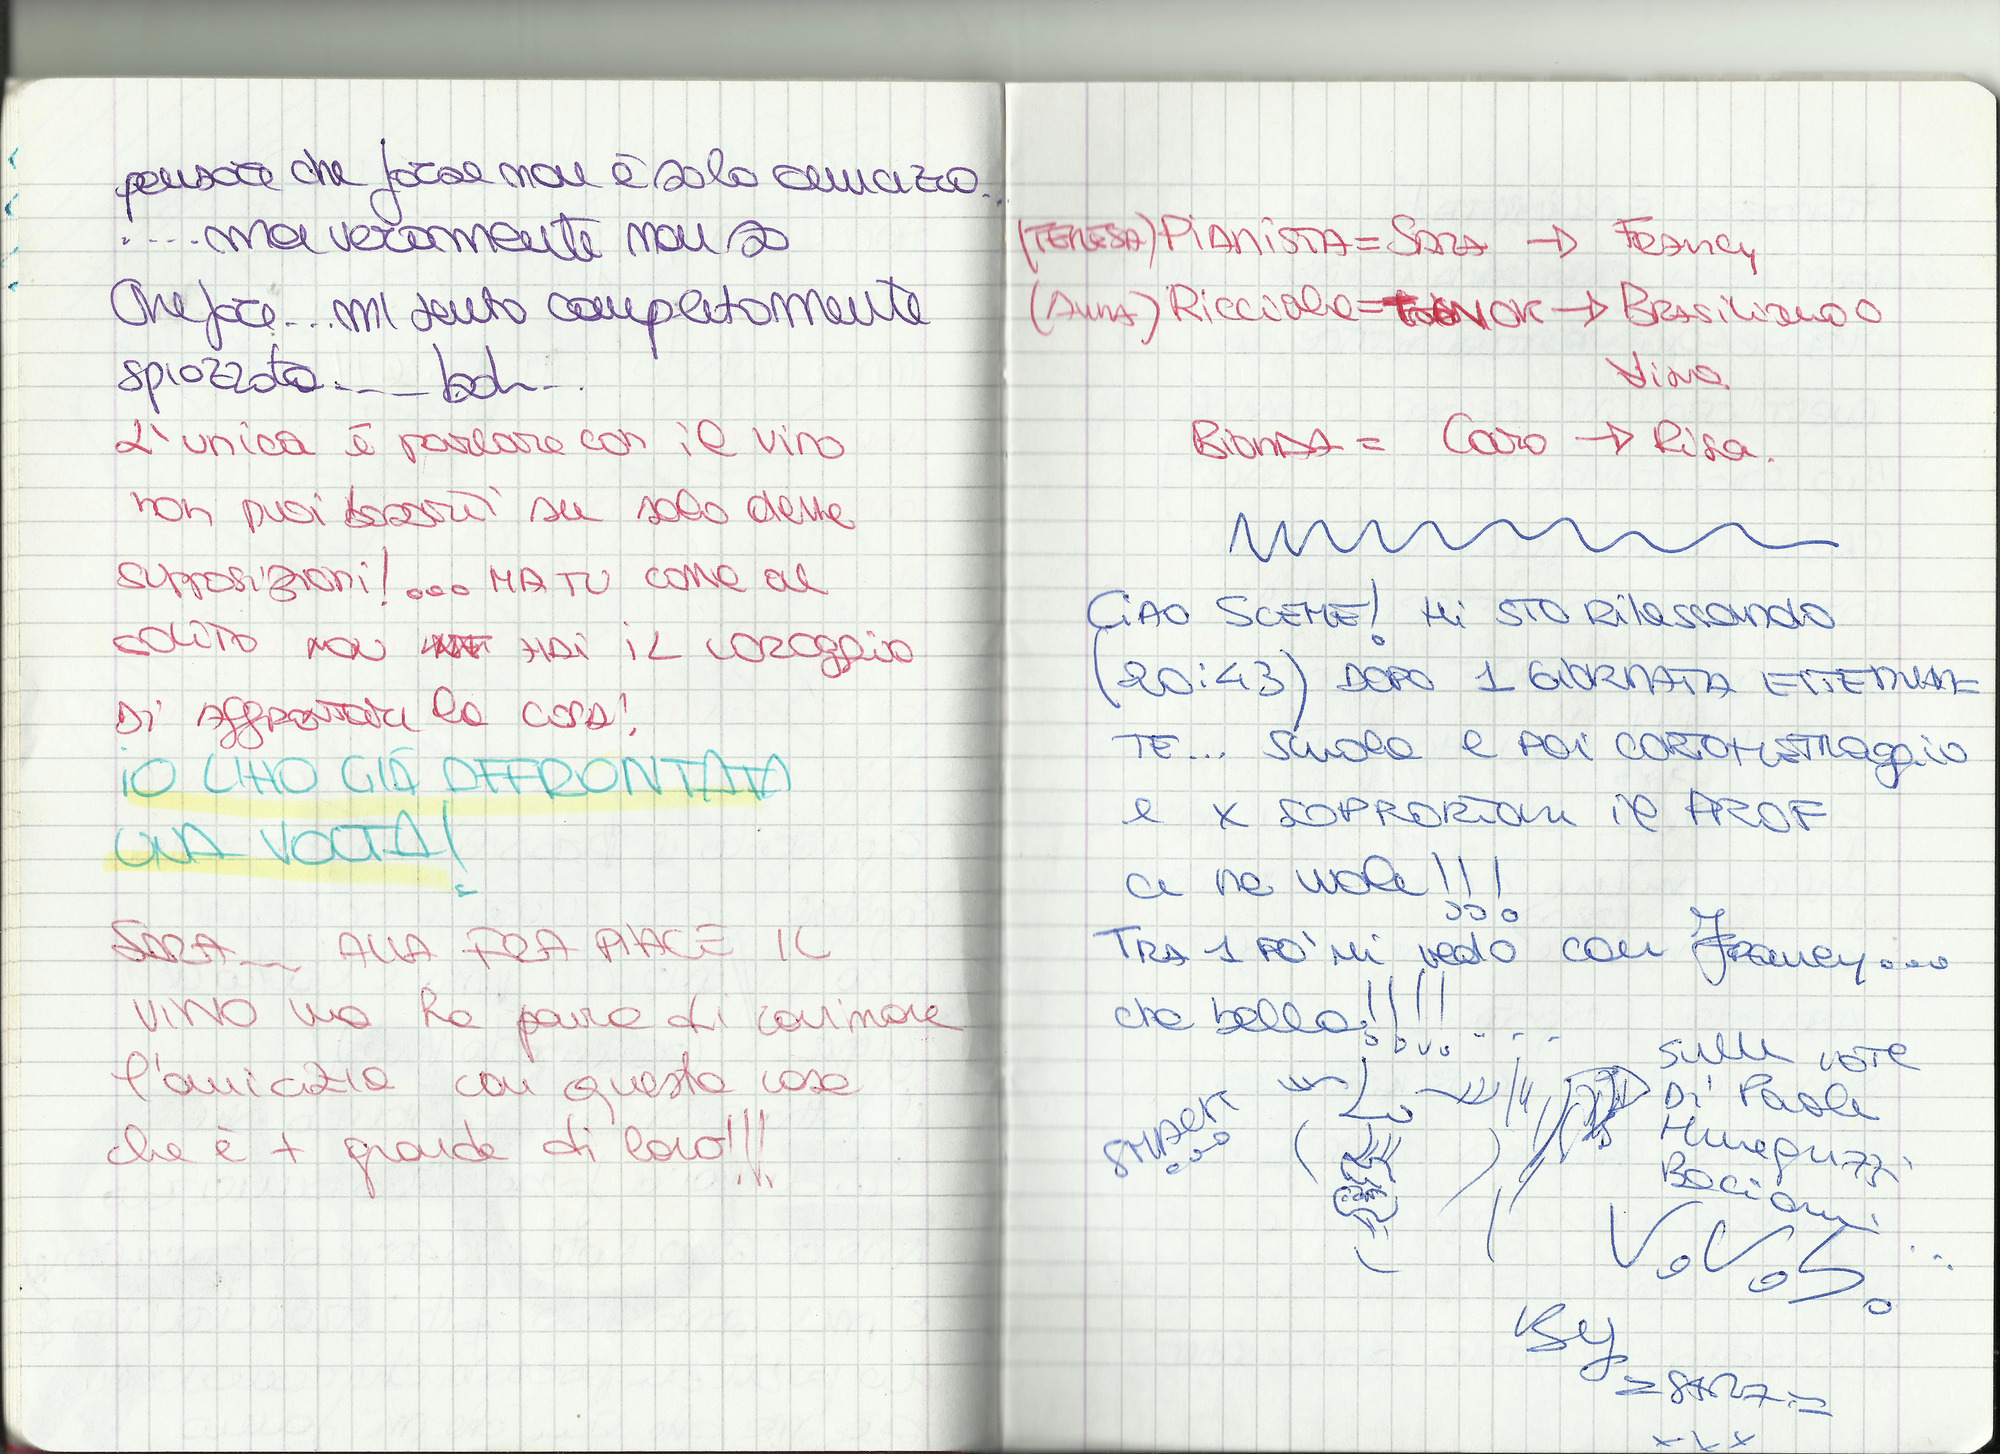 pensare che forse non è solo amicizia...
....ma veramente non so
Che fare... mi sento completamente
spiazzata... boh...
L'unica è parlare con il vino
non puoi basarti su solo delle
supposizioni!... MA TU come al
solito non HAI IL coraggio
DI AFFRONTARE la cosa!
IO L'HO GIÀ AFFRONTATA
UNA VOLTA!
SARA... ALLA FRA PIACE IL
VINO ma ha paura di rovinare
l'amicizia con questa cosa
che è + grande di loro!!!
(TERESA) PIANISTA = SARA → Francy
(Anna) Ricciola = NOK → BRASILIANO O
Vino
BIONDA = Caro → Risa.
CIAO SCEME! Mi STO Rilassando
(20:43) DOPO 1 GIORNATA ESTENUAN=
TE... scuola e poi CORTOMETRAGGIO
e x SOPPORTARE il PROF
ce ne vuole!!!
TRA 1 PO' MI vedo con Francy...
che bello!!!!....
SMACK
...
sulle note
DI Paolo
Meneguzzi
Baciami
V.V.S.
...
By
=SARA=
x x x